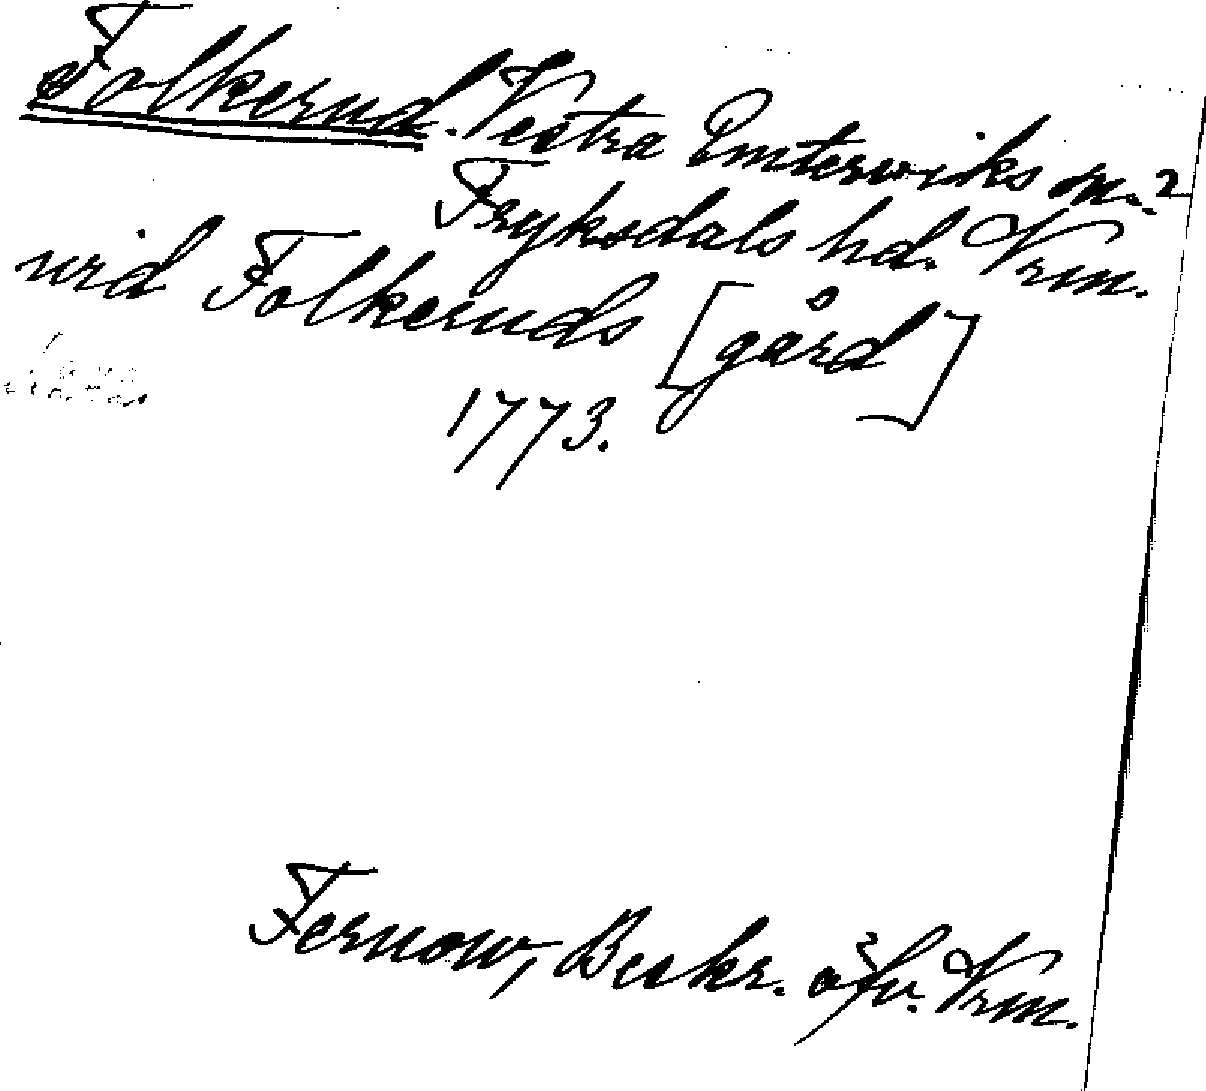 Folkerud. Vestra Emterwiks sn.?
Fryksdals hd. Vrm.
wid Folkeruds [gård]
1773.
Fernow, Beskr. öfv. Vrm.